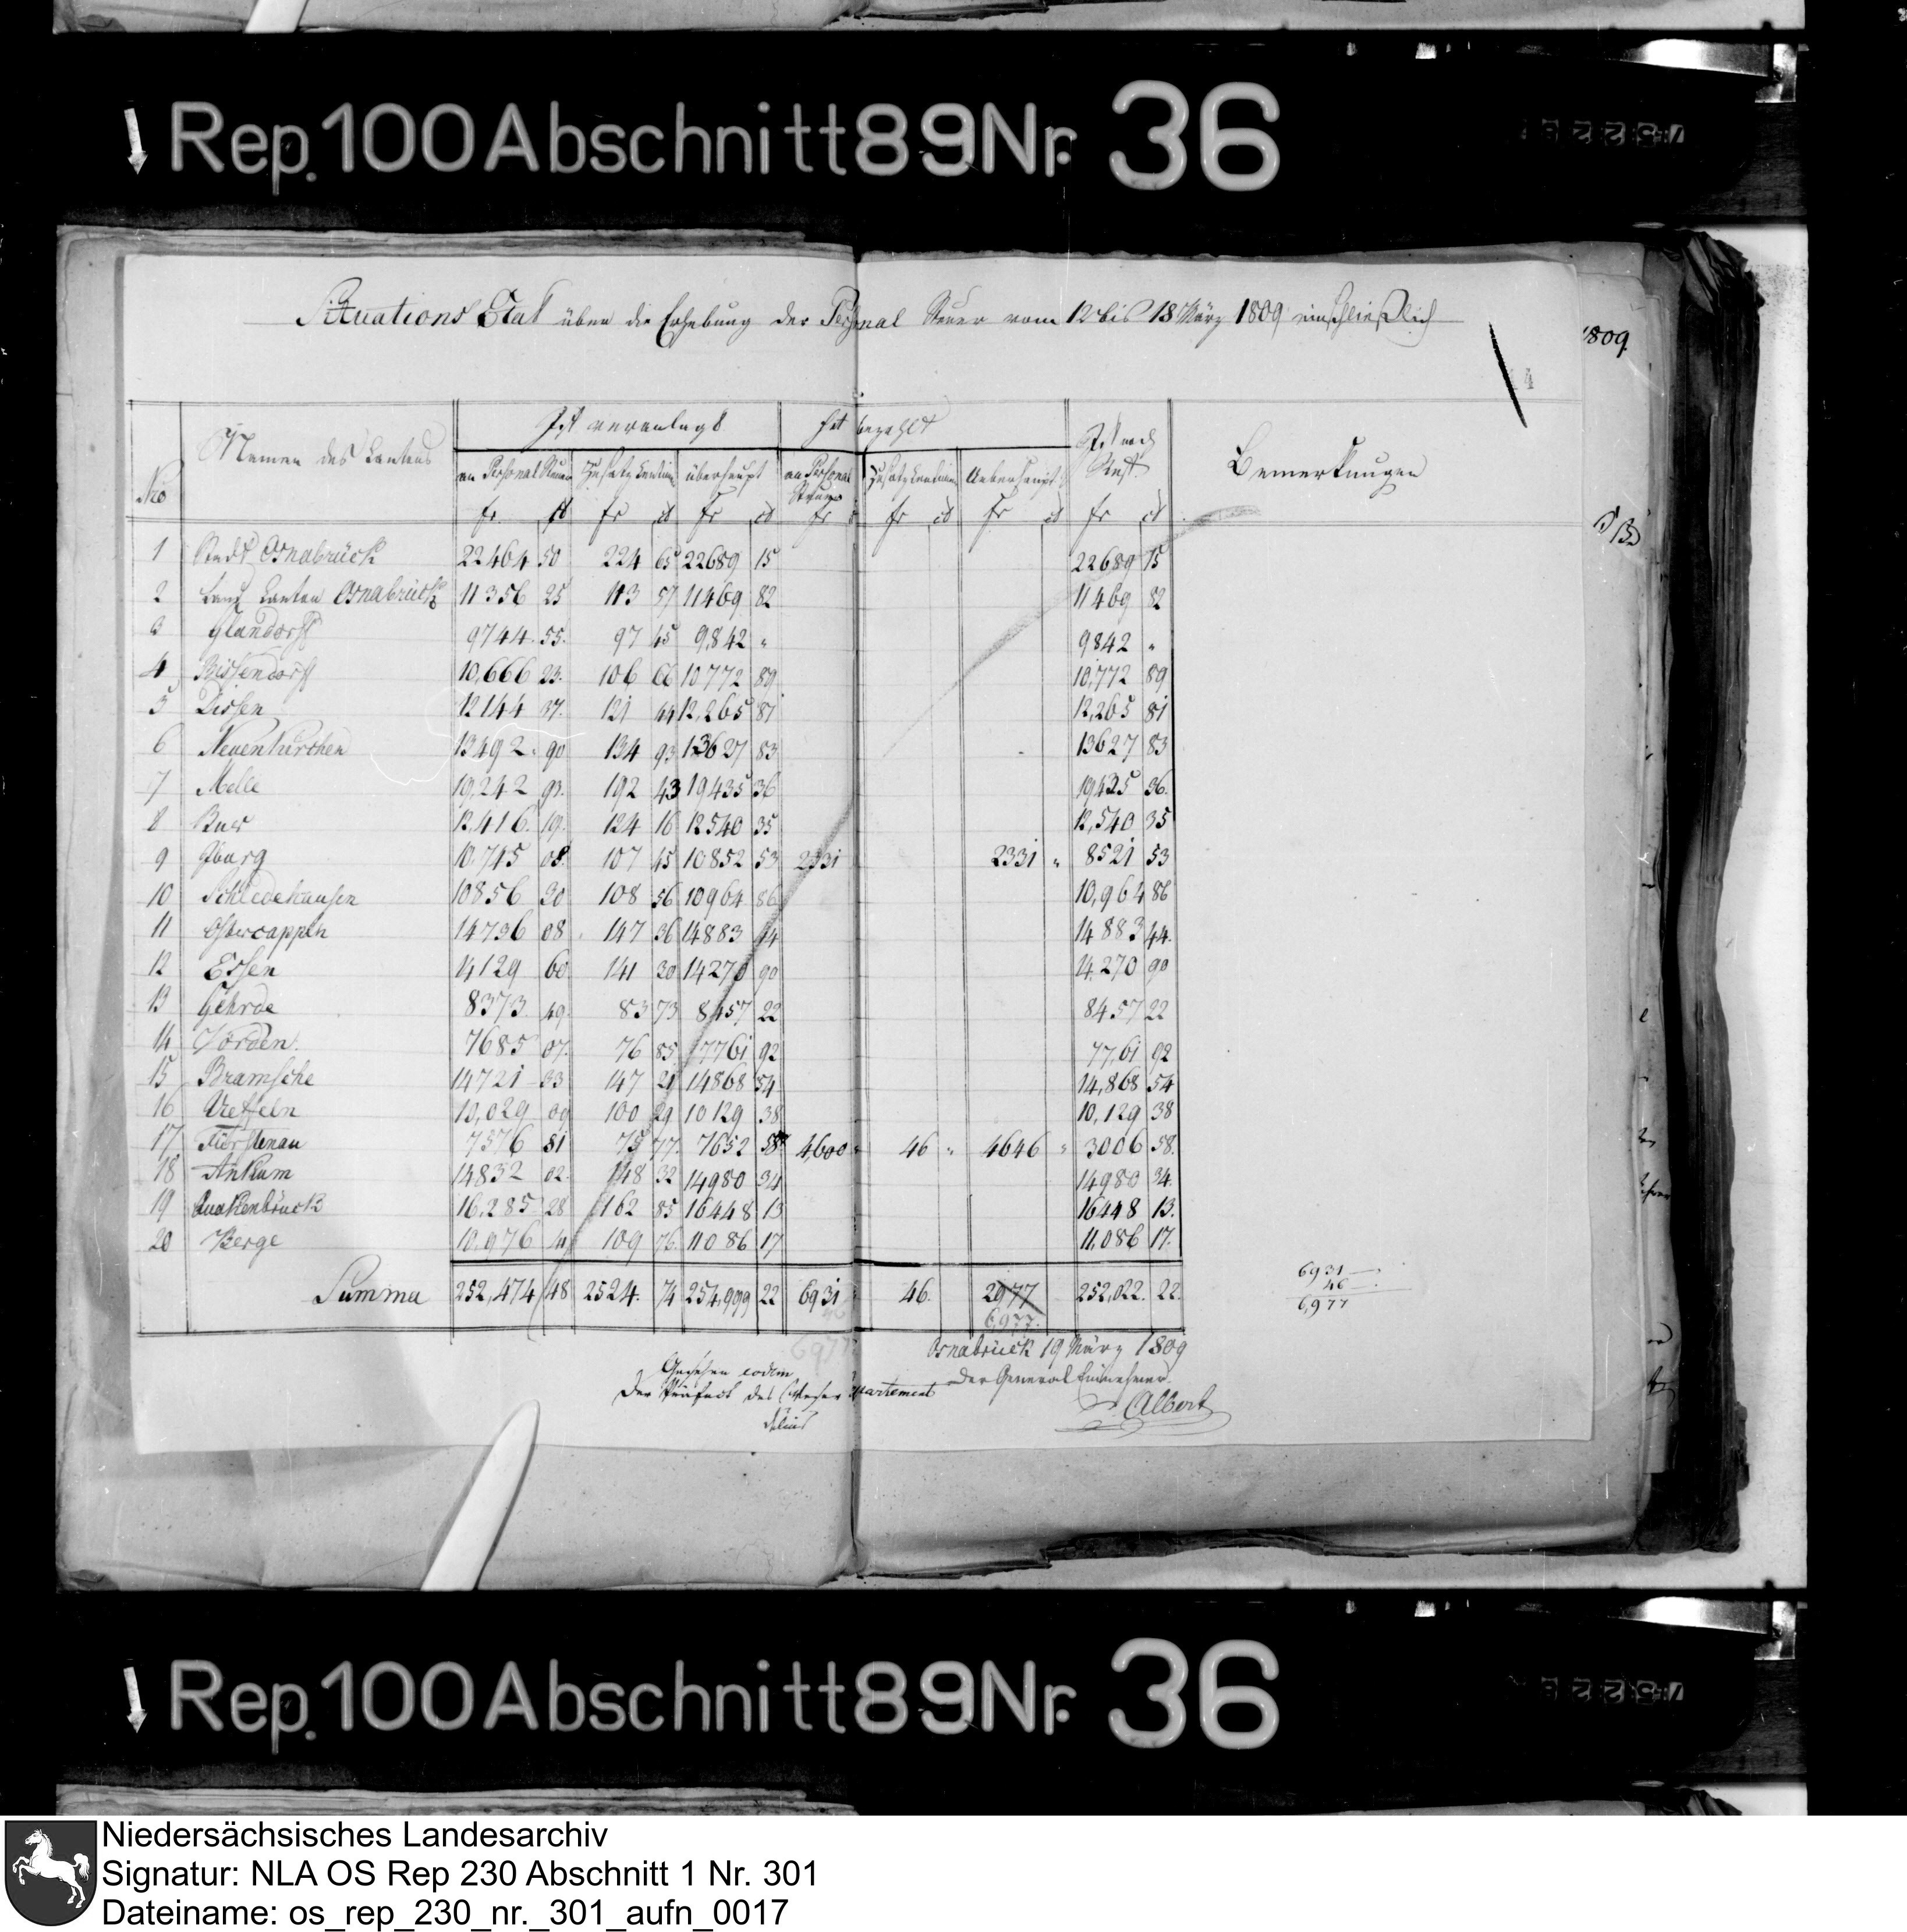 Rep. 100 Abschnitt 89 Nr. 36
Situations Etat über die Erhebung der Personal Steuer vom 12 bis 18 März 1809 einschließlich
1809.
Nro Namen des Cantons Ist veranlagt hat bezahlt Ist noch Rest Bemerkungen
an Personal Steuer Zusatz Centimen überhaupt an Personal Steuer Zusatz Centimen Ueberhaupt
fr ct fr ct fr ct fr fr ct fr ct fr ct
1 Stadt Osnabrück 22464 50 224 65 22689 15 22689 15
2 Land Canton Osnabrück 11356 25 113 57 11469 82 11469 82
3 Glandorff 9744. 55. 97 45 9842 " 9842 "
4 Bissendorff 10,666 23. 106 66 10772 89 10,772 89
5 Dissen 12144 37. 121 44 12,265 81 12,265 81
6 Neuenkirchen 13492. 90 134 93 13627 83 13627 83
7 Melle 19,242 93. 192 43 19435 36 19435 36.
8 Buer 12,416. 19. 124 16 12540 35 12,540 35
9 Iburg 10,745 08. 107 45 10852 53 2331 2331 " 8521 53
10 Schledehausen 10856 30 108 56 10964 86 10,964 86
11 Ostercappeln 14736 08 147 36 14883 44 14883 44.
12 Essen 14129 60 141 30 14270 90 14,270 90
13 Gehrde 8373 49. 83 73 8457 22 8457 22
14 Vörden. 7685 07. 76 85 7761 92 7761 92
15 Bramsche 14721 33 147 21 14868 54 14,868 54
16 Ueffeln 10,029 09 100 29 10129 38 10,129 38
17 Fürstenau 7576 81 75 77. 7652 58 4,600 " 46 " 4646 " 3006 58.
18 Ankum 14832 02. 148 32 14980 34 14980 34.
19 Quakenbrück 16,285 28 162 85 16448 13 16448 13.
20 Berge 10,976 41 109 76. 11086 17 11,086 17.
Summa 252,474 48 2524. 74 254,999 22 6931 46. 2977 252,022. 22.
6,977.
6931
46
6,977
6977
Osnabrück 19 März 1809
Gesehen eodem
Der Präfect des Weser Departement
Delius
Der General Einnehmer
Albert
Rep. 100 Abschnitt 89 Nr. 36
Niedersächsisches Landesarchiv
Signatur: NLA OS Rep 230 Abschnitt 1 Nr. 301
Dateiname: os_rep_230_nr._301_aufn_0017